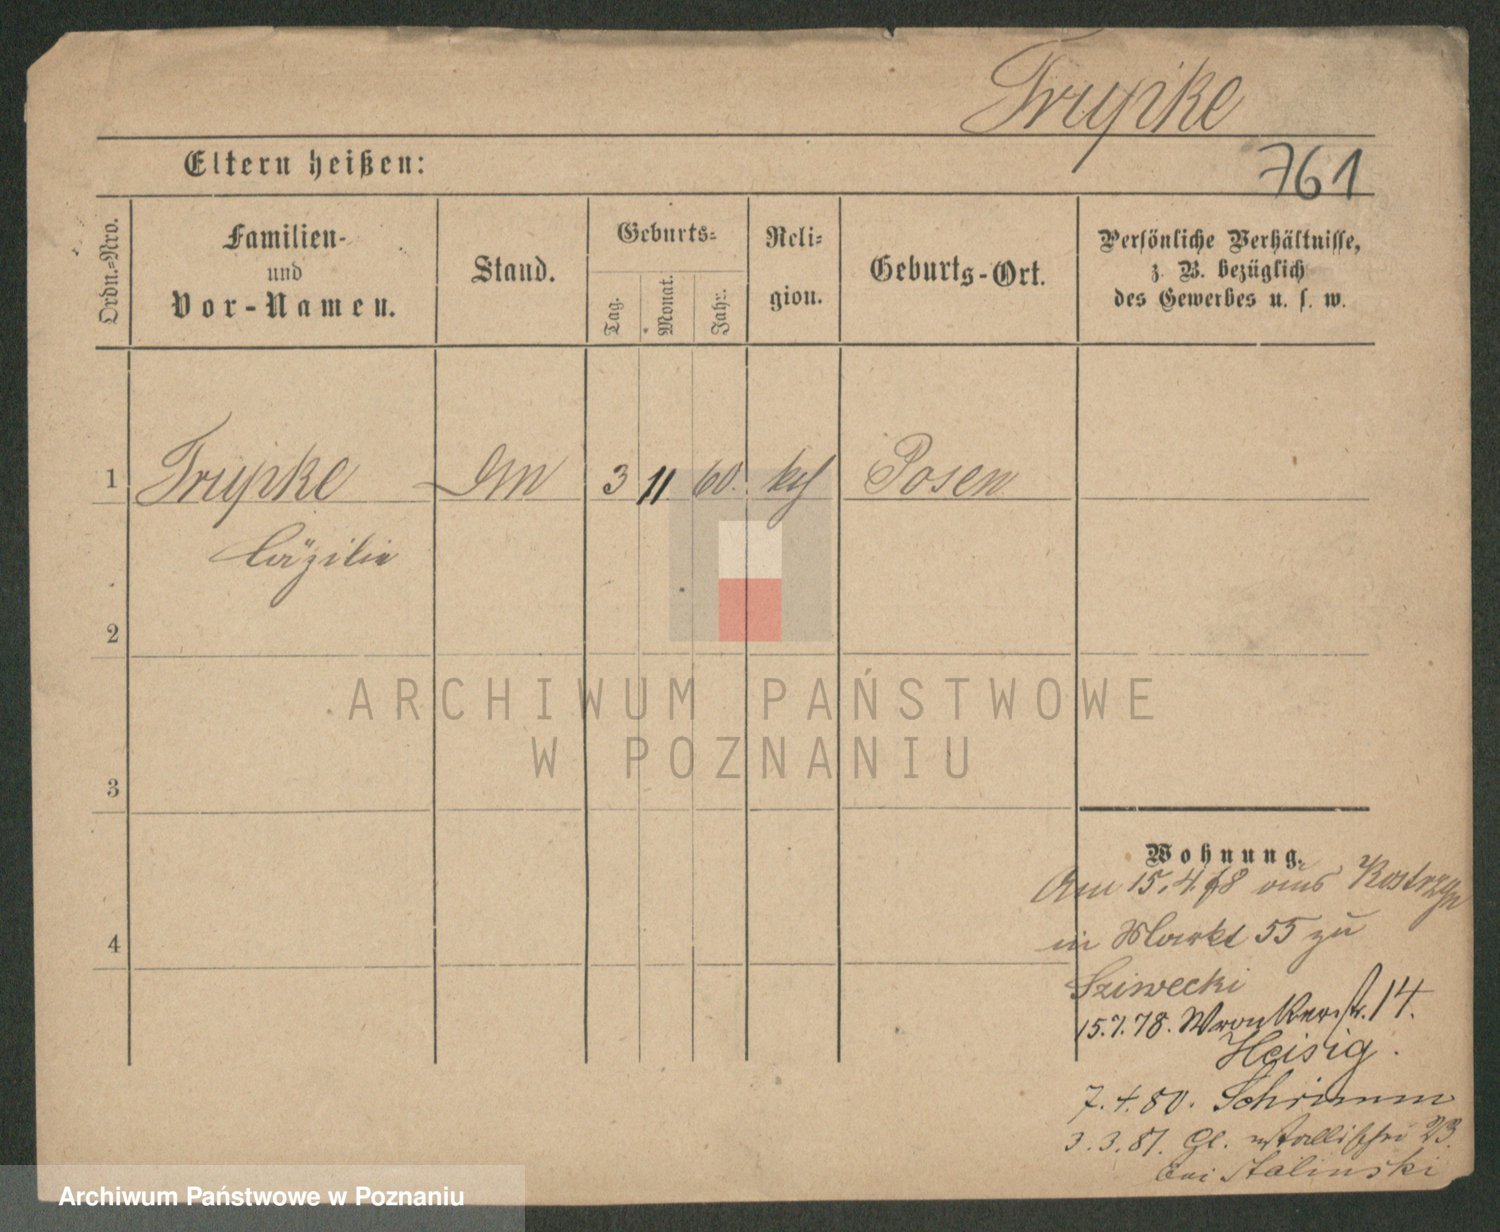 Trypke
761
Eltern heißen:
Ordn.=Nro.
Familien-
und
Vor-Namen.
Stand.
Geburts=
Tag.
Monat.
Jahr.
Reli=
gion.
Geburts-Ort.
Persönliche Verhältnisse,
z. B. bezüglich
des Gewerbes u. s. w.
1 Trypke 3 11 60. Posen
Cäzilie
2
3
4
Wohnung.
Am 15.4.78 aus Kostrzyn
in Markt 55 zu
15.7.78. Wronkerstr. 14.
Heisig.
7.4.80. Schrimm
3.3.81. Gr. 23.
bei Stalinski
ARCHIWUM PAŃSTWOWE
W POZNANIU
Archiwum Państwowe w Poznaniu